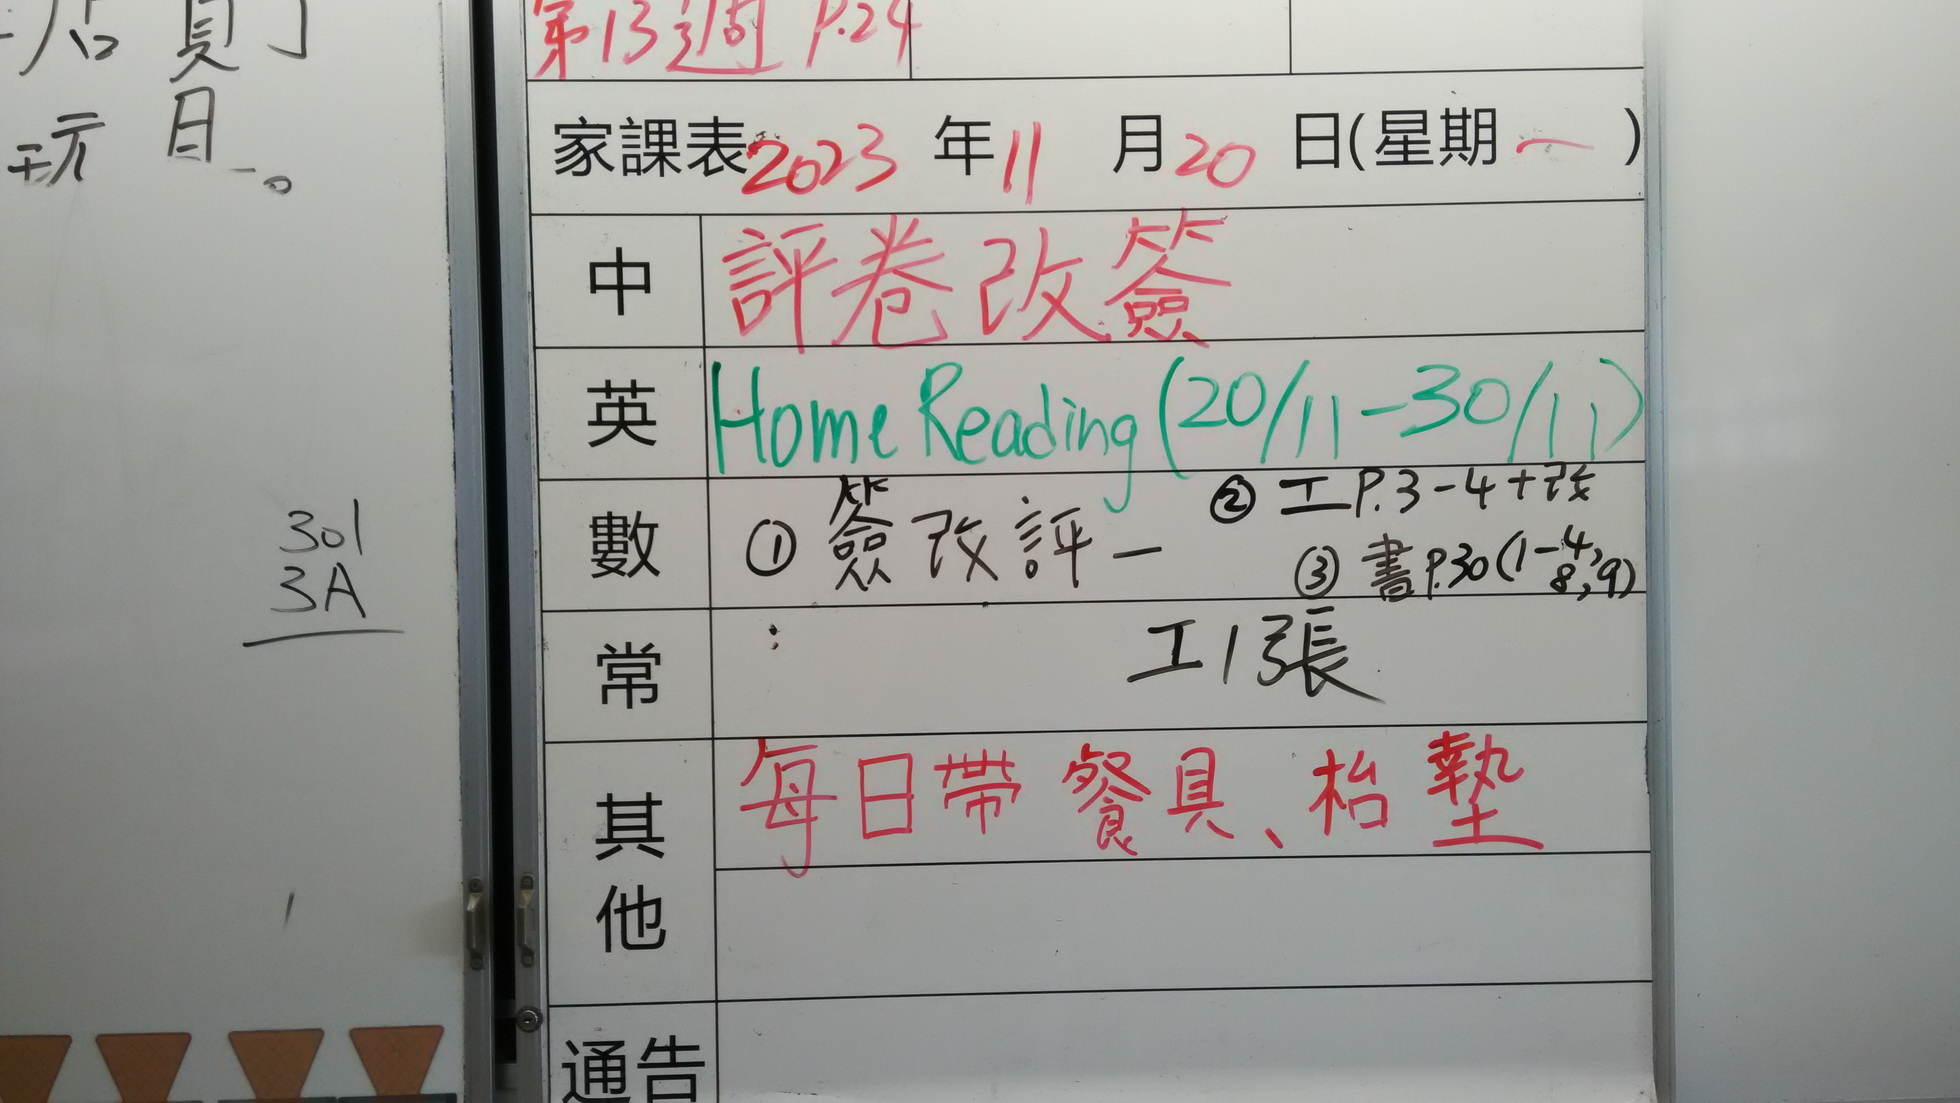 員」
玩 日 。
301
3A
第13週 P.24
家課表 2023 年 11 月 20 日(星期 一 )
中 評卷改簽
英 Home Reading (20/11-30/11)
數 ① 簽改評一 ② 工P.3-4+改
③ 書P.30(1-4,8,9)
常 : 工1張
其他 每日帶餐具、枱墊
通告